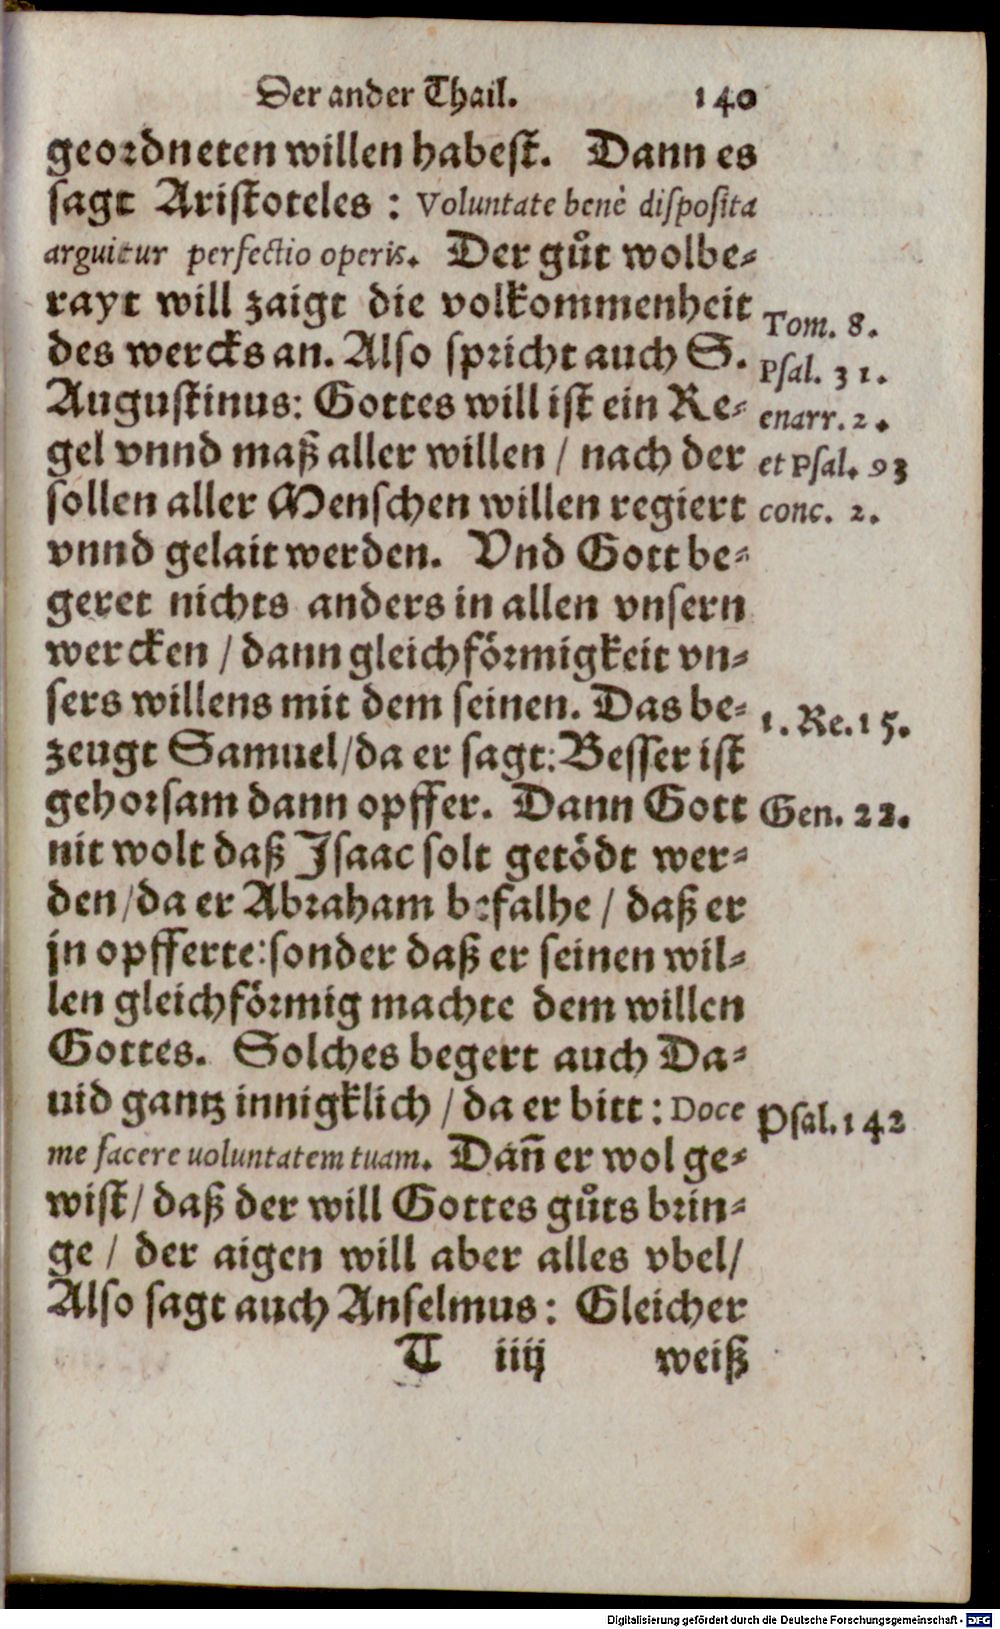 Der ander Thail. 140
geordneten willen habest. Dann es
sagt Aristoteles : Voluntate benè disposita
arguitur perfectio operis. Der gůt wolbe-
rayt will zaigt die volkommenheit
des wercks an. Also spricht auch S.
Tom. 8.
Psal. 31.
Augustinus: Gottes will ist ein Re-
enarr. 2.
gel vnnd maß aller willen / nach der
et Psal. 93
sollen aller Menschen willen regiert
conc. 2.
vnnd gelait werden. Vnd Gott be-
geret nichts anders in allen vnsern
wercken / dann gleichförmigkeit vn-
sers willens mit dem seinen. Das be-
1. Re. 15.
zeugt Samuel/da er sagt: Besser ist
gehorsam dann opffer. Dann Gott
Gen. 22.
nit wolt daß Isaac solt getödt wer-
den/da er Abraham befalhe / daß er
jn opfferte: sonder daß er seinen wil-
len gleichförmig machte dem willen
Gottes. Solches begert auch Da-
uid gantz innigklich / da er bitt: Doce
Psal. 142
me facere uoluntatem tuam. Dañ er wol ge-
wist/ daß der will Gottes gůts brin-
ge / der aigen will aber alles vbel/
Also sagt auch Anselmus: Gleicher
T iiij weiß
Digitalisierung gefördert durch die Deutsche Forschungsgemeinschaft - DFG